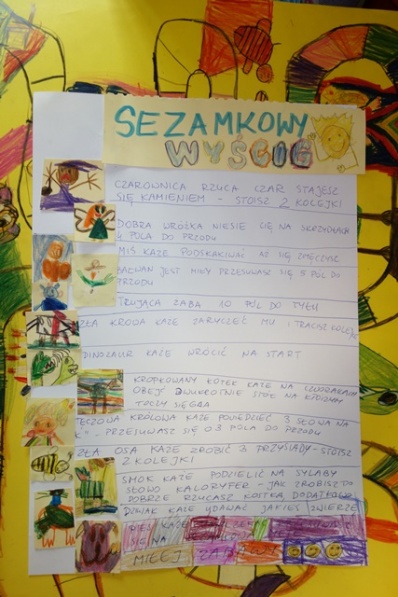 SEZAMKOWY
WYŚCIG
CZAROWNICA RZUCA CZAR STAJESZ
SIĘ KAMIENIEM - STOISZ 2 KOLEJKI
DOBRA WRÓŻKA NIESIE CIĘ NA SKRZYDŁACH
4 POLA DO PRZODU
MIŚ KAŻE PODSKAKIWAĆ AŻ SIĘ ZMĘCZYSZ
BAŁWAN JEST MIŁY PRZESUWASZ SIĘ 5 PÓL DO
PRZODU
TRUJĄCA ŻABA 10 PÓL DO TYŁU
ZŁA KROWA KAŻE ZARYCZEĆ MU I TRACISZ KOLEJ
DINOZAUR KAŻE WRÓCIĆ NA START
KROPKOWANY KOTEK KAŻE NA CZWORAKACH
OBEJŚ DWUKROTNIE STÓŁ NA KTÓRYM
TOCZY SIĘ GRA
TĘCZOWA KRÓLOWA KAŻE POWIEDZIEĆ 3 SŁOWA NA
K" - PRZESUWASZ SIĘ O 3 POLA DO PRZODU
ZŁA OSA KAŻE ZROBIĆ 3 PRZYSIADY - STOISZ
2 KOLEJKI
SMOK KAŻE PODZIELIĆ NA SYLABY
SŁOWO KALORYFER - JAK ZROBISZ TO
DOBRZE RZUCASZ KOSTKĄ DODATKOWO
DZIWAK KAŻE UDAWAĆ JAKIEŚ ZWIERZĘ
KAŻE
NA
MIEJ ZA